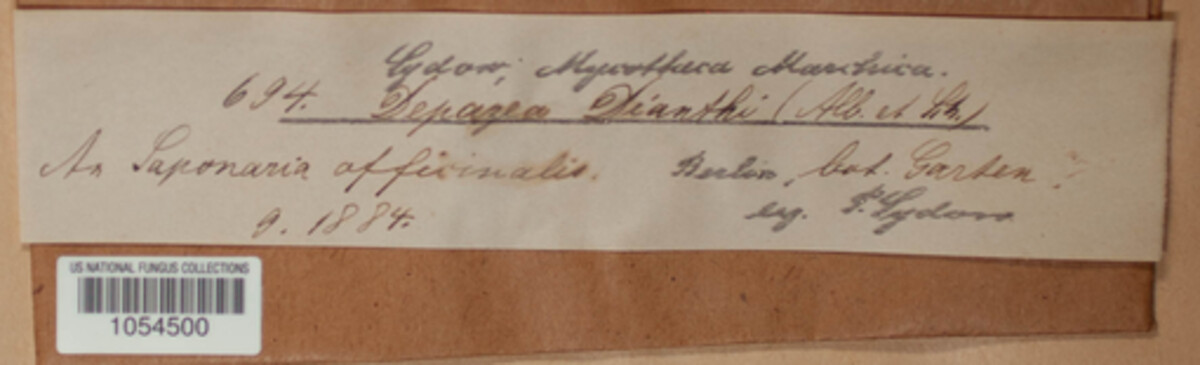 Sydow, Mycotheca Marchica.
694. Depazea Dianthi (Alb. et Sch.)
An Saponaria officinalis. Berlin, bot. Garten.
9. 1884. leg. P. Sydow
US NATIONAL FUNGUS COLLECTIONS
1054500